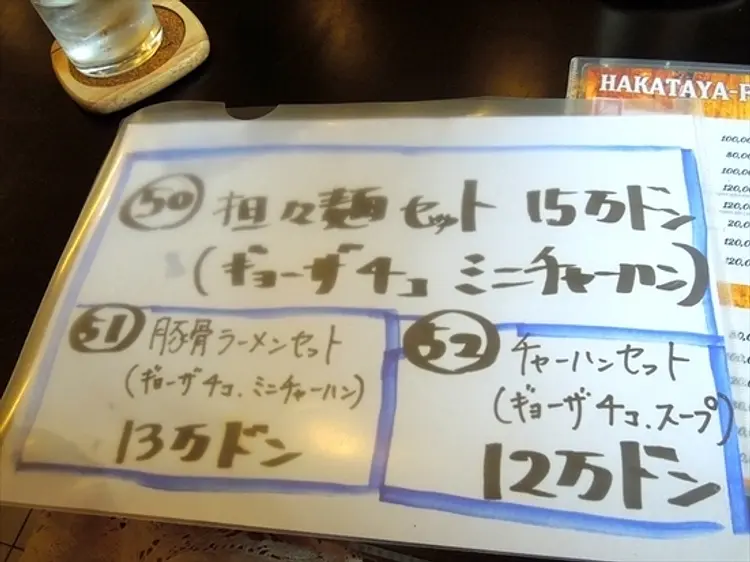 HAKATAYA-
50 担々麺セット 15万ドン
(ギョーザ4コ ミニチャーハン)
51 豚骨ラーメンセット
(ギョーザ4コ.ミニチャーハン)
13万ドン
52 チャーハンセット
(ギョーザ4コ.スープ)
12万ドン
100,00
80,00
100,00
120,00
120,00
20,00
120,00